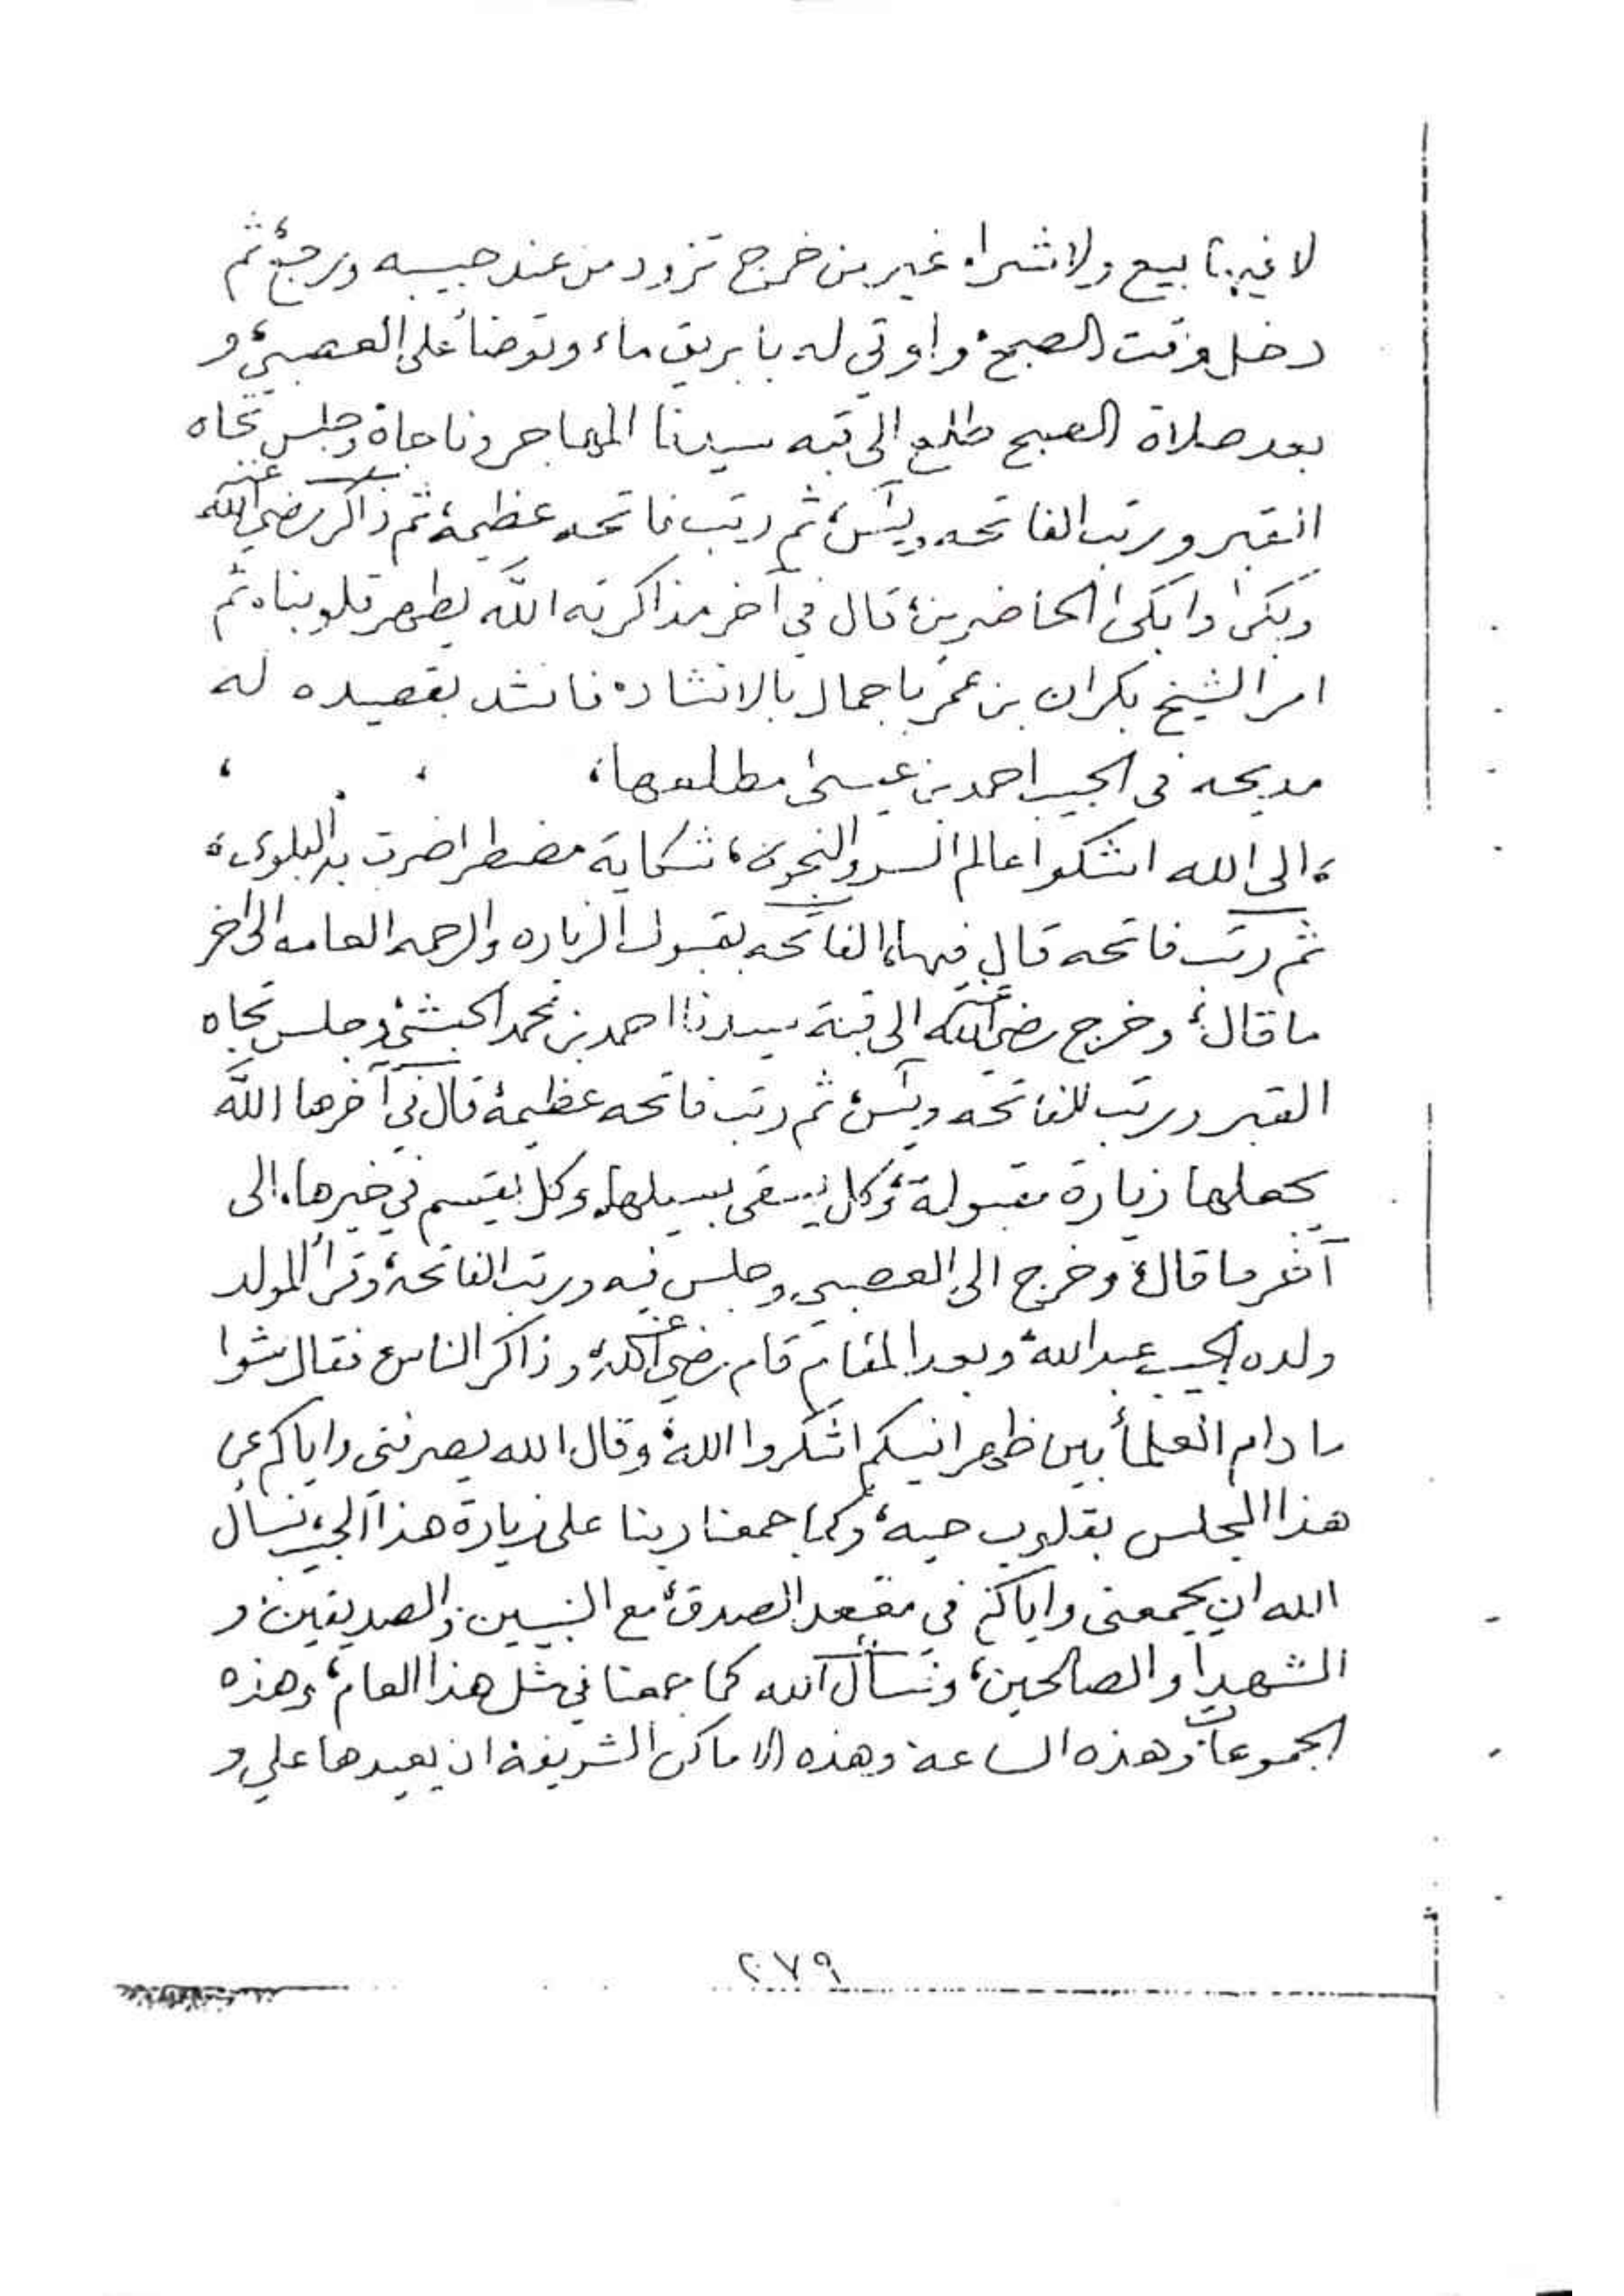 لا فيها بيع ولا شراء غير من خرج تزود من عند حبيبه ورجع، ثم
دخل وقت الصبح، واوتي له بابريق ماء وتوضأ على العصبي، و
بعد صلاة الصبح طلع الى قبه سيدنا المهاجر وناجاه وجلس تجاه
القبر ورتب الفاتحه ويسَ، ثم رتب فاتحه عظيمة، ثم ذاكر رضي الله عنه
وبكى وابكى الحاضرين، قال في آخر مذاكرته الله يطهر قلوبنا، ثم
امر الشيخ بكران بن عمر باجمال بالانشاد، فانشد بقصيده له
مديحه في الحبيب احمد بن عيسى مطلعها،
، الى الله اشكوا عالم السر والنجوى، شكاية مضطر اضرت به البلوى،
ثم رتب فاتحه قال فيها، الفاتحه بقبول الزياره والرحمه العامه الى اخر
ما قال، وخرج رضي الله عنه الى قبة سيدنا احمد بن محمد الحبشي، وجلس تجاه
القبر ورتب الفاتحه ويسَ، ثم رتب فاتحه عظيمة قال في آخرها الله
يجعلها زيارة مقبولة، وكل يسقى بسيلها، وكل يقسم في خيرها، الى
آخر ما قال، وخرج الى العصبي، وجلس فيه ورتب الفاتحة، وقرأ المولد
ولده الحبيب عبدالله، وبعد المقام قام رضي الله عنه، وذاكر الناس، فقال
ما دام العلمأ بين ظهرانيكم اشكروا الله، وقال الله يصرفني واياكم عن
هذا المجلس بقلوب حيه، وكما جمعنا ربنا على زيارة هذا الحبيب، نسأل
الله ان يجمعني واياكم في مقعد الصدق، مع النبيين والصديقين، و
الشهدا والصالحين، ونسأل الله كما جمعنا في مثل هذا العام، وهذه
الجموعات وهذه الساعة، وهذه الاماكن الشريفة ان يعيدها علي و
٢٧٩